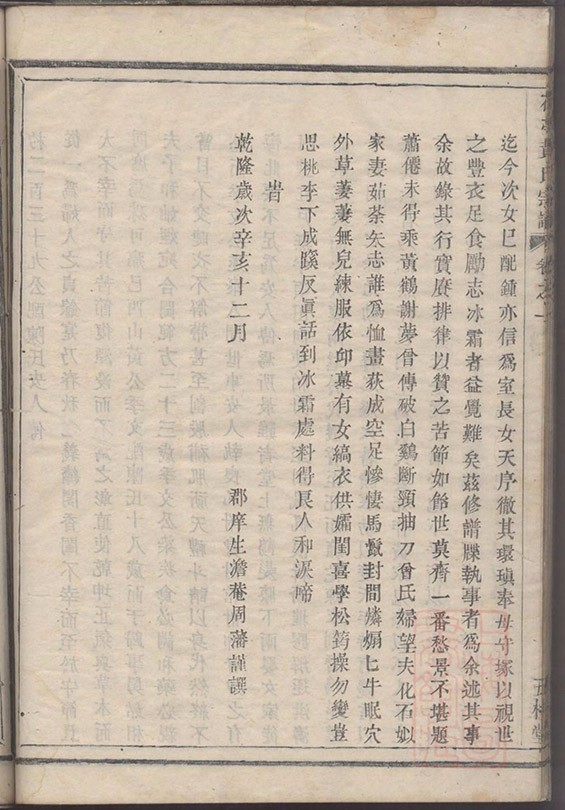 迄今次女巳配鍾亦信爲室長女天序徹其環瑱奉母守塚以視世
之豐衣足食勵志冰霜者益覺難矣茲修譜牒執事者爲余述其事
余故錄其行實賡排律以贊之苦節如飴世莫齊一番愁景不堪題
蕭僊未得乘黃鶴謝夢曾傳破白鷄斷頸抽刀曾氏婦望夫化石姒
家妻茹荼矢志誰爲恤畫荻成空足慘悽馬鬛封間燐煽匕牛眠穴
外草萋萋無兒練服依邱墓有女縞衣供孀閨喜學松筠操勿變豈
思桃李下成蹊反眞話到冰霜處料得艮人和淚啼
旹
乾隆歲次辛亥十二月
郡庠生澹菴周藩謹撰
黃氏宗譜
卷之一